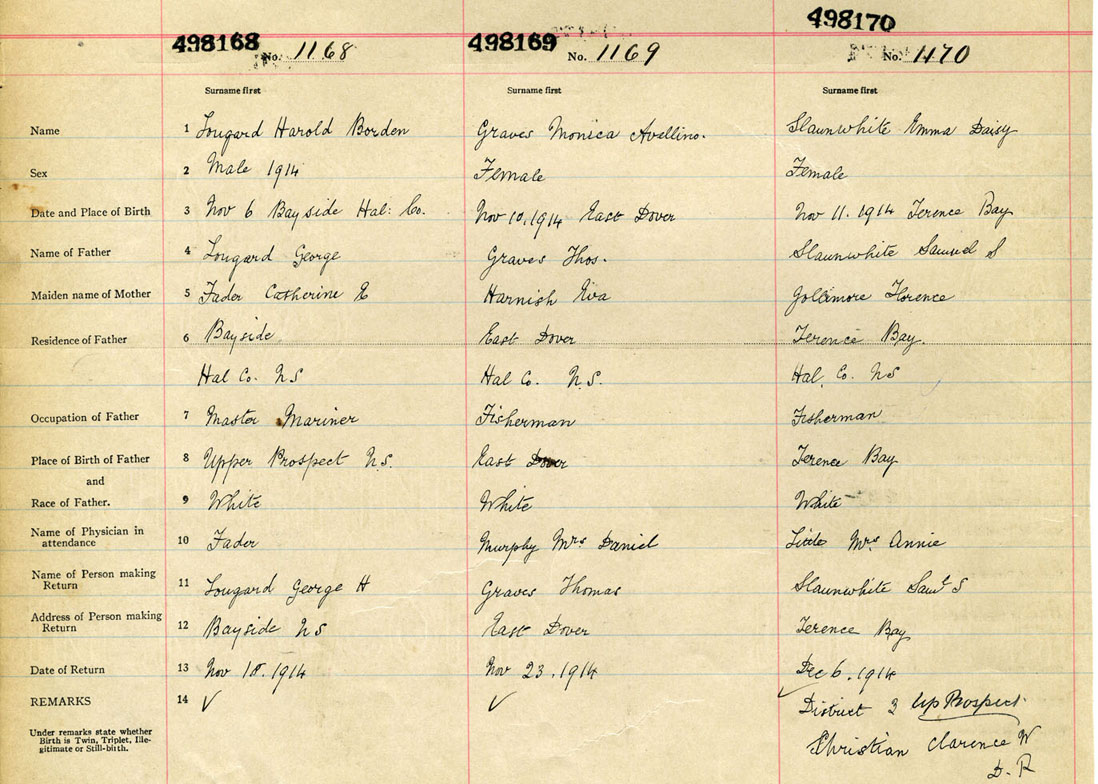 498168 498169 498170
No. 1168 No. 1169 No. 1170
Surname first Surname first Surname first
Name 1 Lougard Harold Borden Graves Monica Avellino. Slaunwhite Emma Daisy
Sex 2 Male 1914 Female Female
Date and Place of Birth 3 Nov 6 Bayside Hal: Co. Nov 10.1914 East Dover Nov 11.1914 Terence Bay
Name of Father 4 Lougard George Graves Thos. Slaunwhite Samuel S
Maiden name of Mother 5 Fader Catherine E Harnish Eva Jollimore Florence
Residence of Father 6 Bayside East Dover Terence Bay.
Hal Co. NS Hal Co. N.S. Hal. Co. NS
Occupation of Father 7 Master Mariner Fisherman Fisherman
Place of Birth of Father 8 Upper Prospect N.S. East Dover Terence Bay
and
Race of Father. 9 White White White
Name of Physician in
attendance 10 Fader Murphy Mrs Daniel Little Mrs Annie
Name of Person making
Return 11 Lougard George H Graves Thomas Slaunwhite Saml S
Address of Person making
Return 12 Bayside NS East Dover Terence Bay
Date of Return 13 Nov 1914 Nov 23.1914 Dec 6.1914
REMARKS 14 ✓ ✓ ✓ District 3 Up Prospect.
Under remarks state whether
Birth is Twin, Triplet, Ille-
gitimate or Still-birth.
Christian Clarence W
D.R